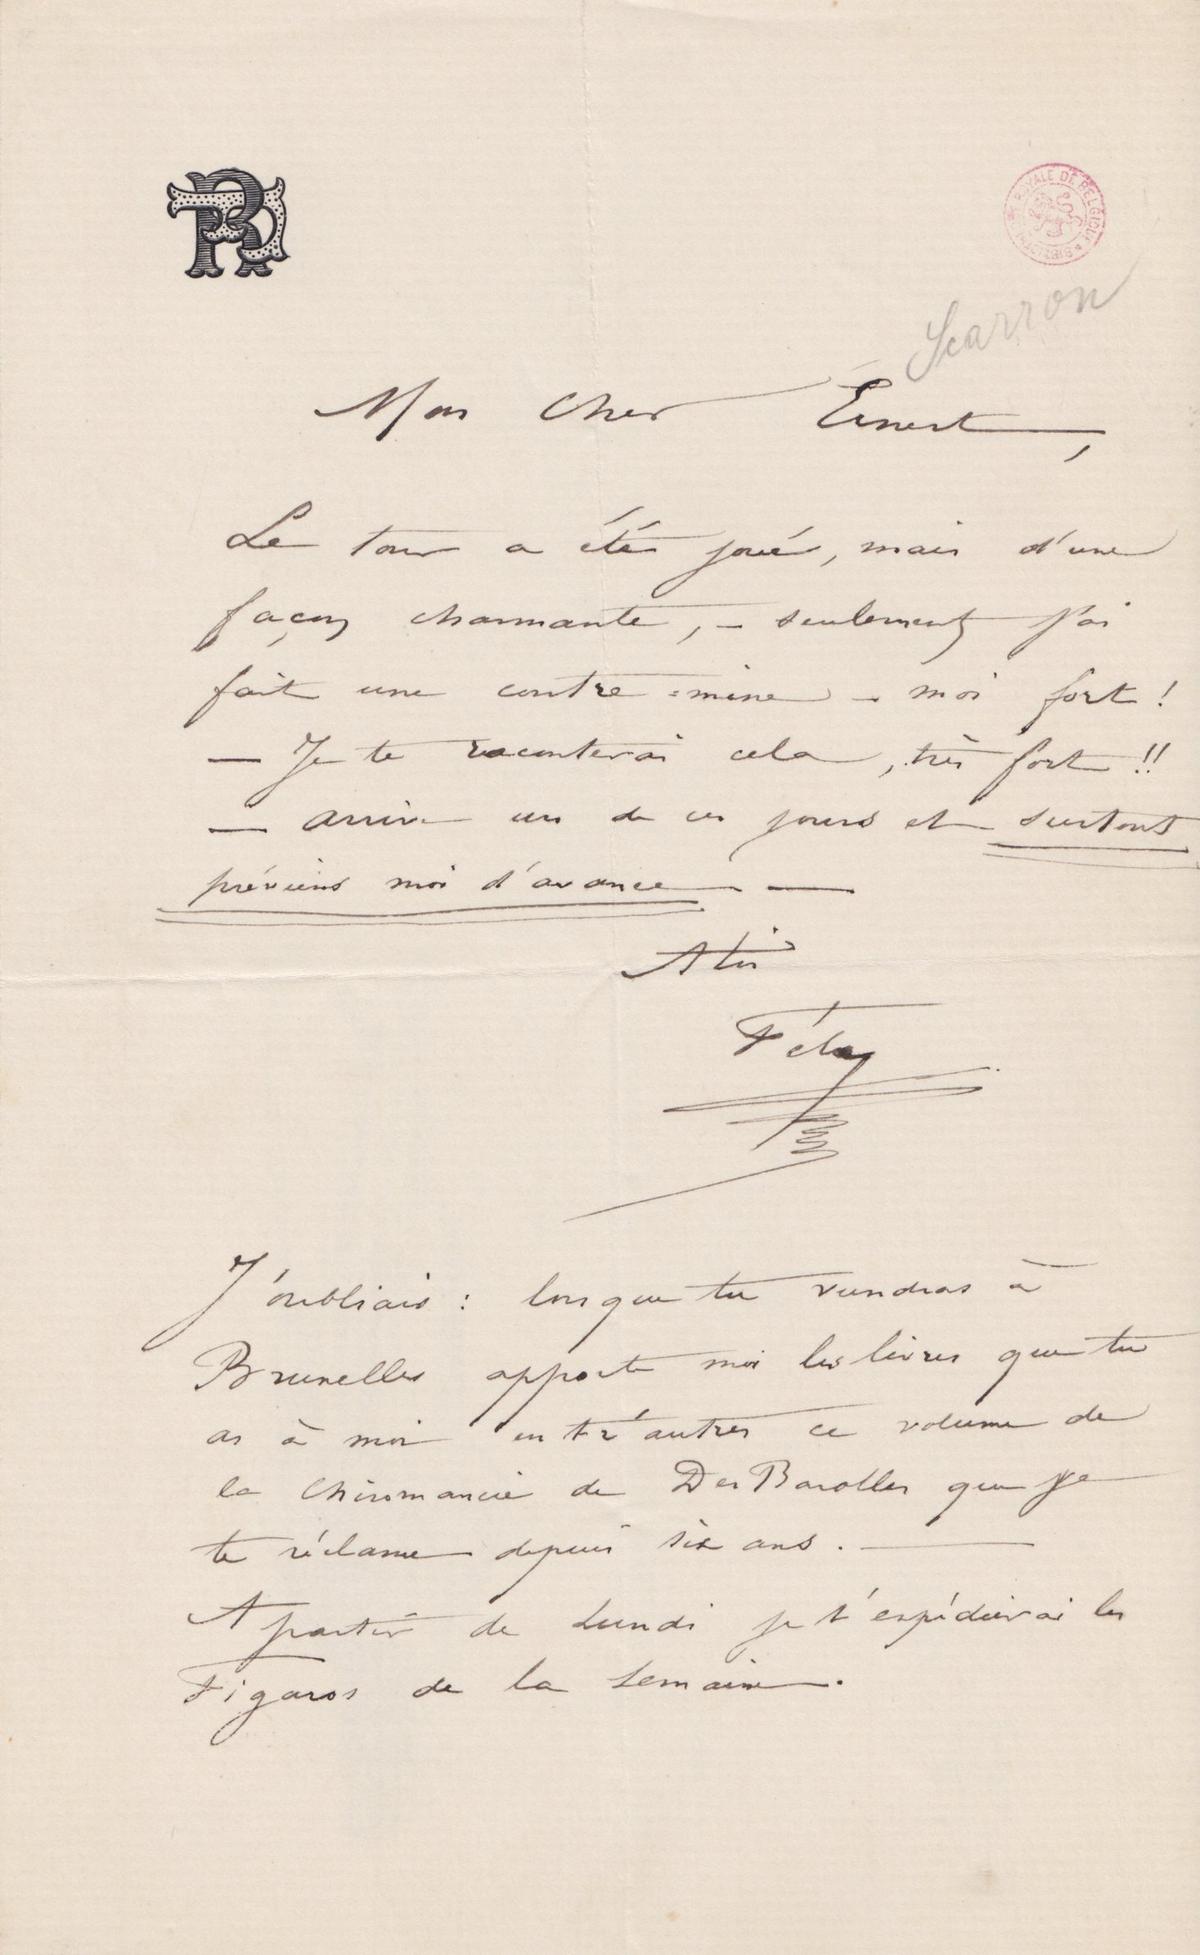 FR
BIBLIOTHÈQUE ROYALE DE BELGIQUE
Scarron
Mon Cher Ernest,
Le tour a été joué, mais d'une
façon charmante, – seulement j'ai
fait une contre=mine – moi fort !
– Je te raconterai cela, très fort !!
– arrive un de ces jours et surtout
préviens moi d'avance –
A toi
Fély
J'oubliais : lorsque tu viendras à
Bruxelles apporte moi les livres que tu
as à moi entr'autres ce volume de
la Chiromancie de Des Barolles que je
te réclame depuis six ans. –
A partir de Lundi je t'expédierai les
Figaros de la Semaine.